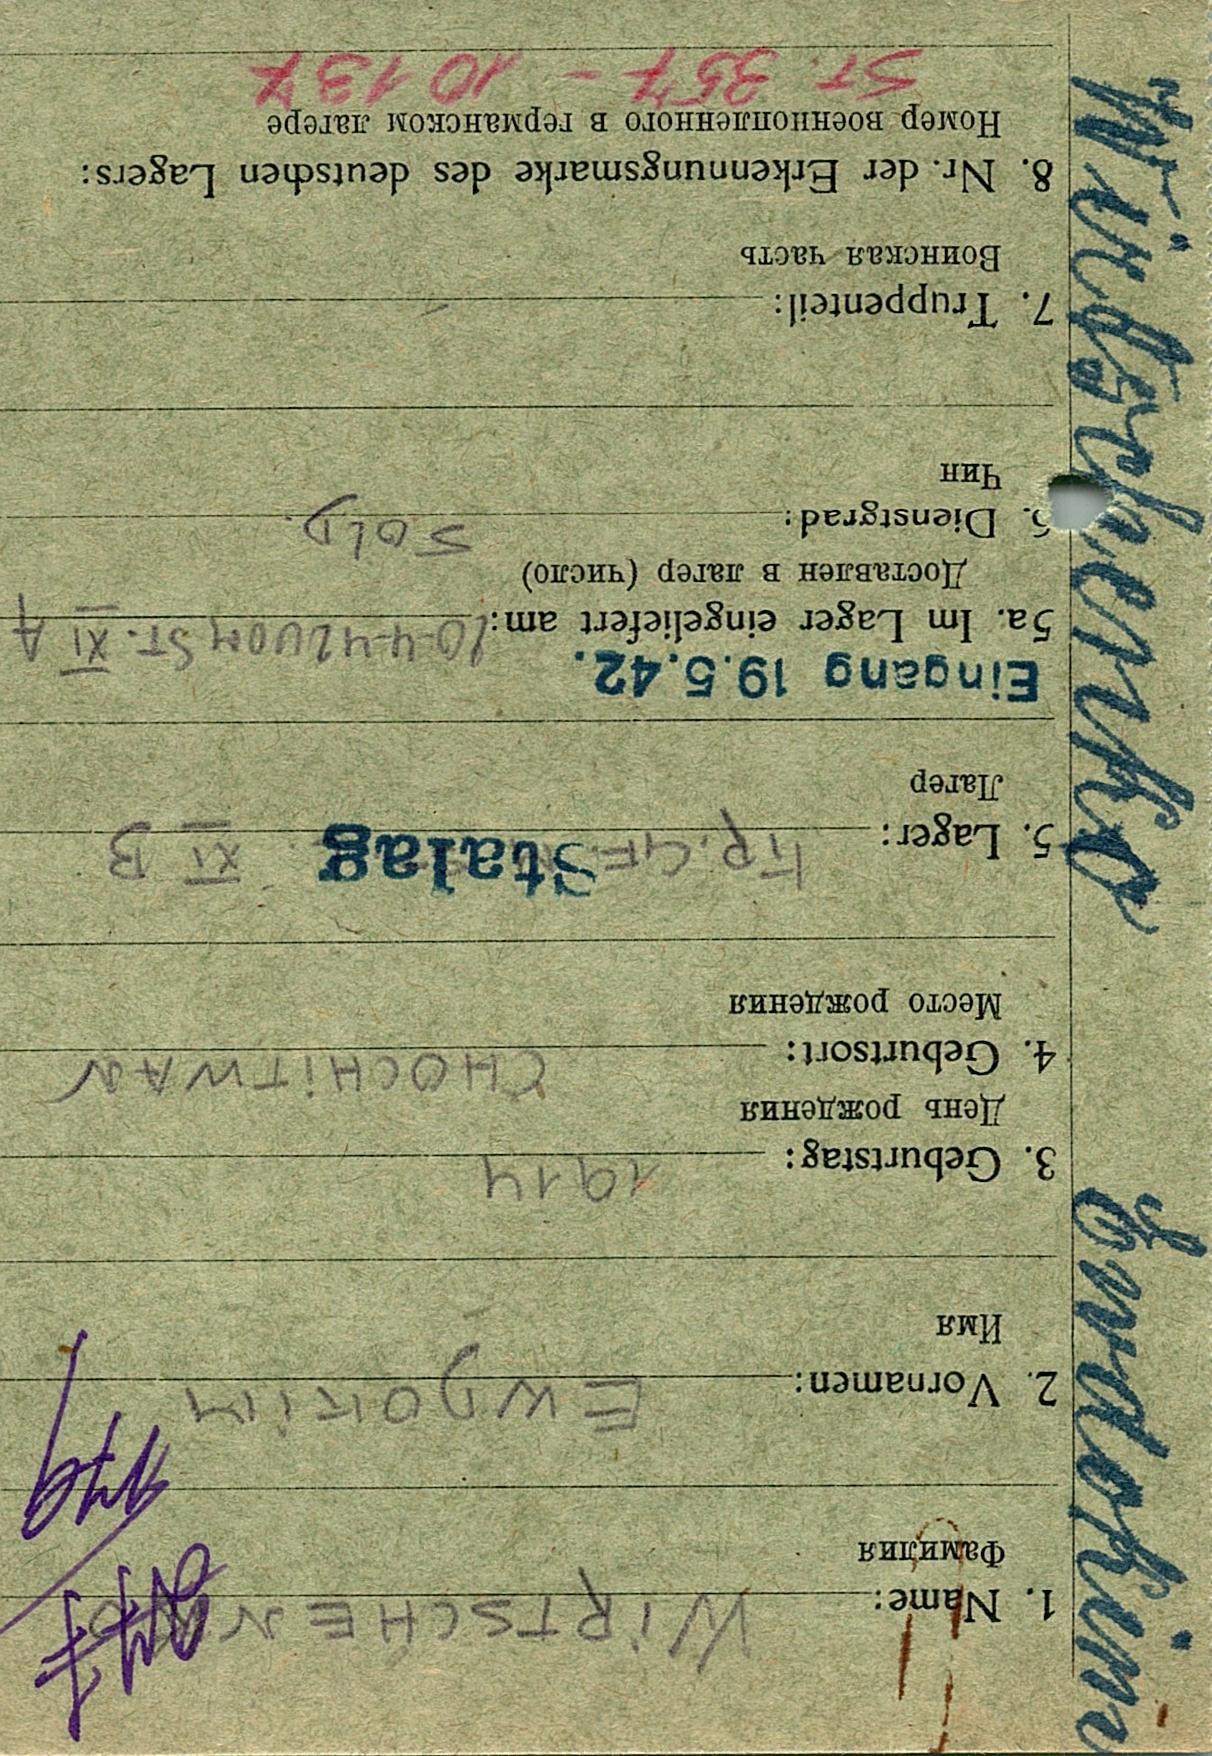 Wirtschenko Ewdokim
1. Name: WIRTSCHENKO
Фамилия
2. Vornamen: EWDOKIM
Имя
3. Geburtstag: 1914
День рождения
4. Geburtsort: CHOCHiTWAN
Место рождения
5. Lager: KR.GEF. Stalag XI B
Лагер
Eingang 19.5.42.
5a. Im Lager eingeliefert am: 10-4-42 VOM ST. XI A
Доставлен в лагер (число)
6. Dienstgrad: SOLD.
Чин
7. Truppenteil:
Воинская часть
8. Nr. der Erkennungsmarke des deutschen Lagers:
Номер военнопленного в германском лагере
ST. 357 - 10137